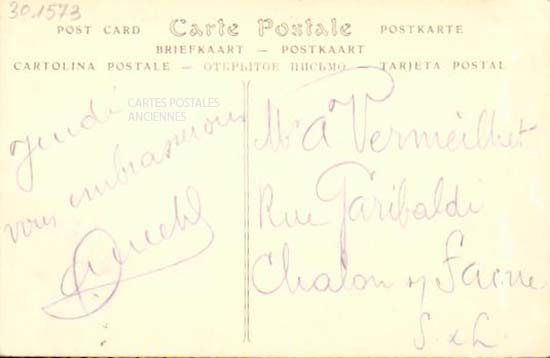 30.1573
Carte Postale
POST CARD
POSTKARTE
BRIEFKAART — POSTKAART
CARTOLINA POSTALE — ОТКРЫТОЕ ПИСЬМО — TARJETA POSTAL
CARTES POSTALES
ANCIENNES
Jeudi
vous embrasserons
Mr A Vermeilhet
Rue Garibaldi
Chalon s/ Saône
S. & L.